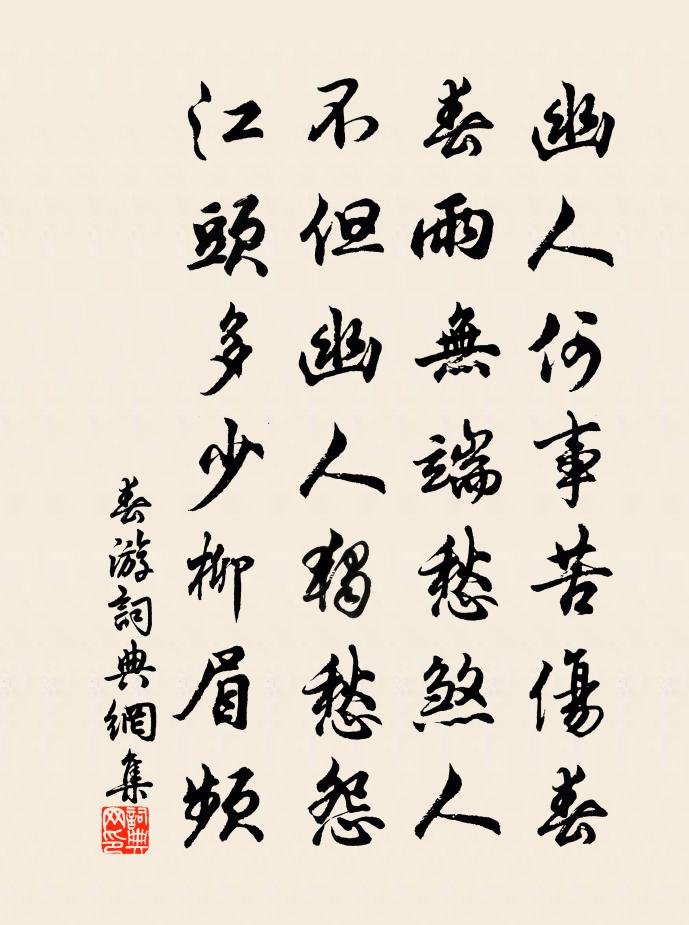 幽人何事苦傷春
春雨無端愁煞人
不但幽人獨愁怨
江頭多少柳眉頻
春游詞典網集
詞典
网印